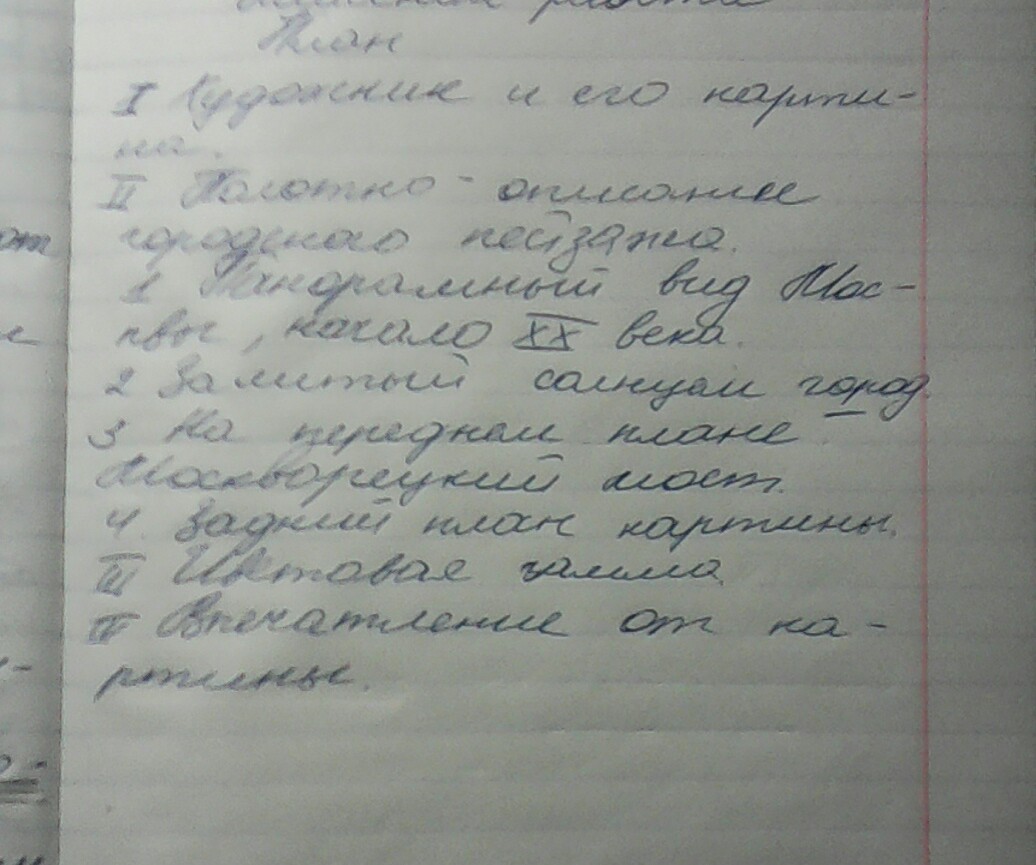 План
I Художник и его карти-
на.
II Полотно - описание
городского пейзажа.
1 Панорамный вид Мос-
квы, начало XX века.
2 Залитый солнцем город.
3 На переднем плане
Москворецкий мост.
4. Задний план картины.
III Цветовая гамма.
IV Впечатление от ка-
ртины.